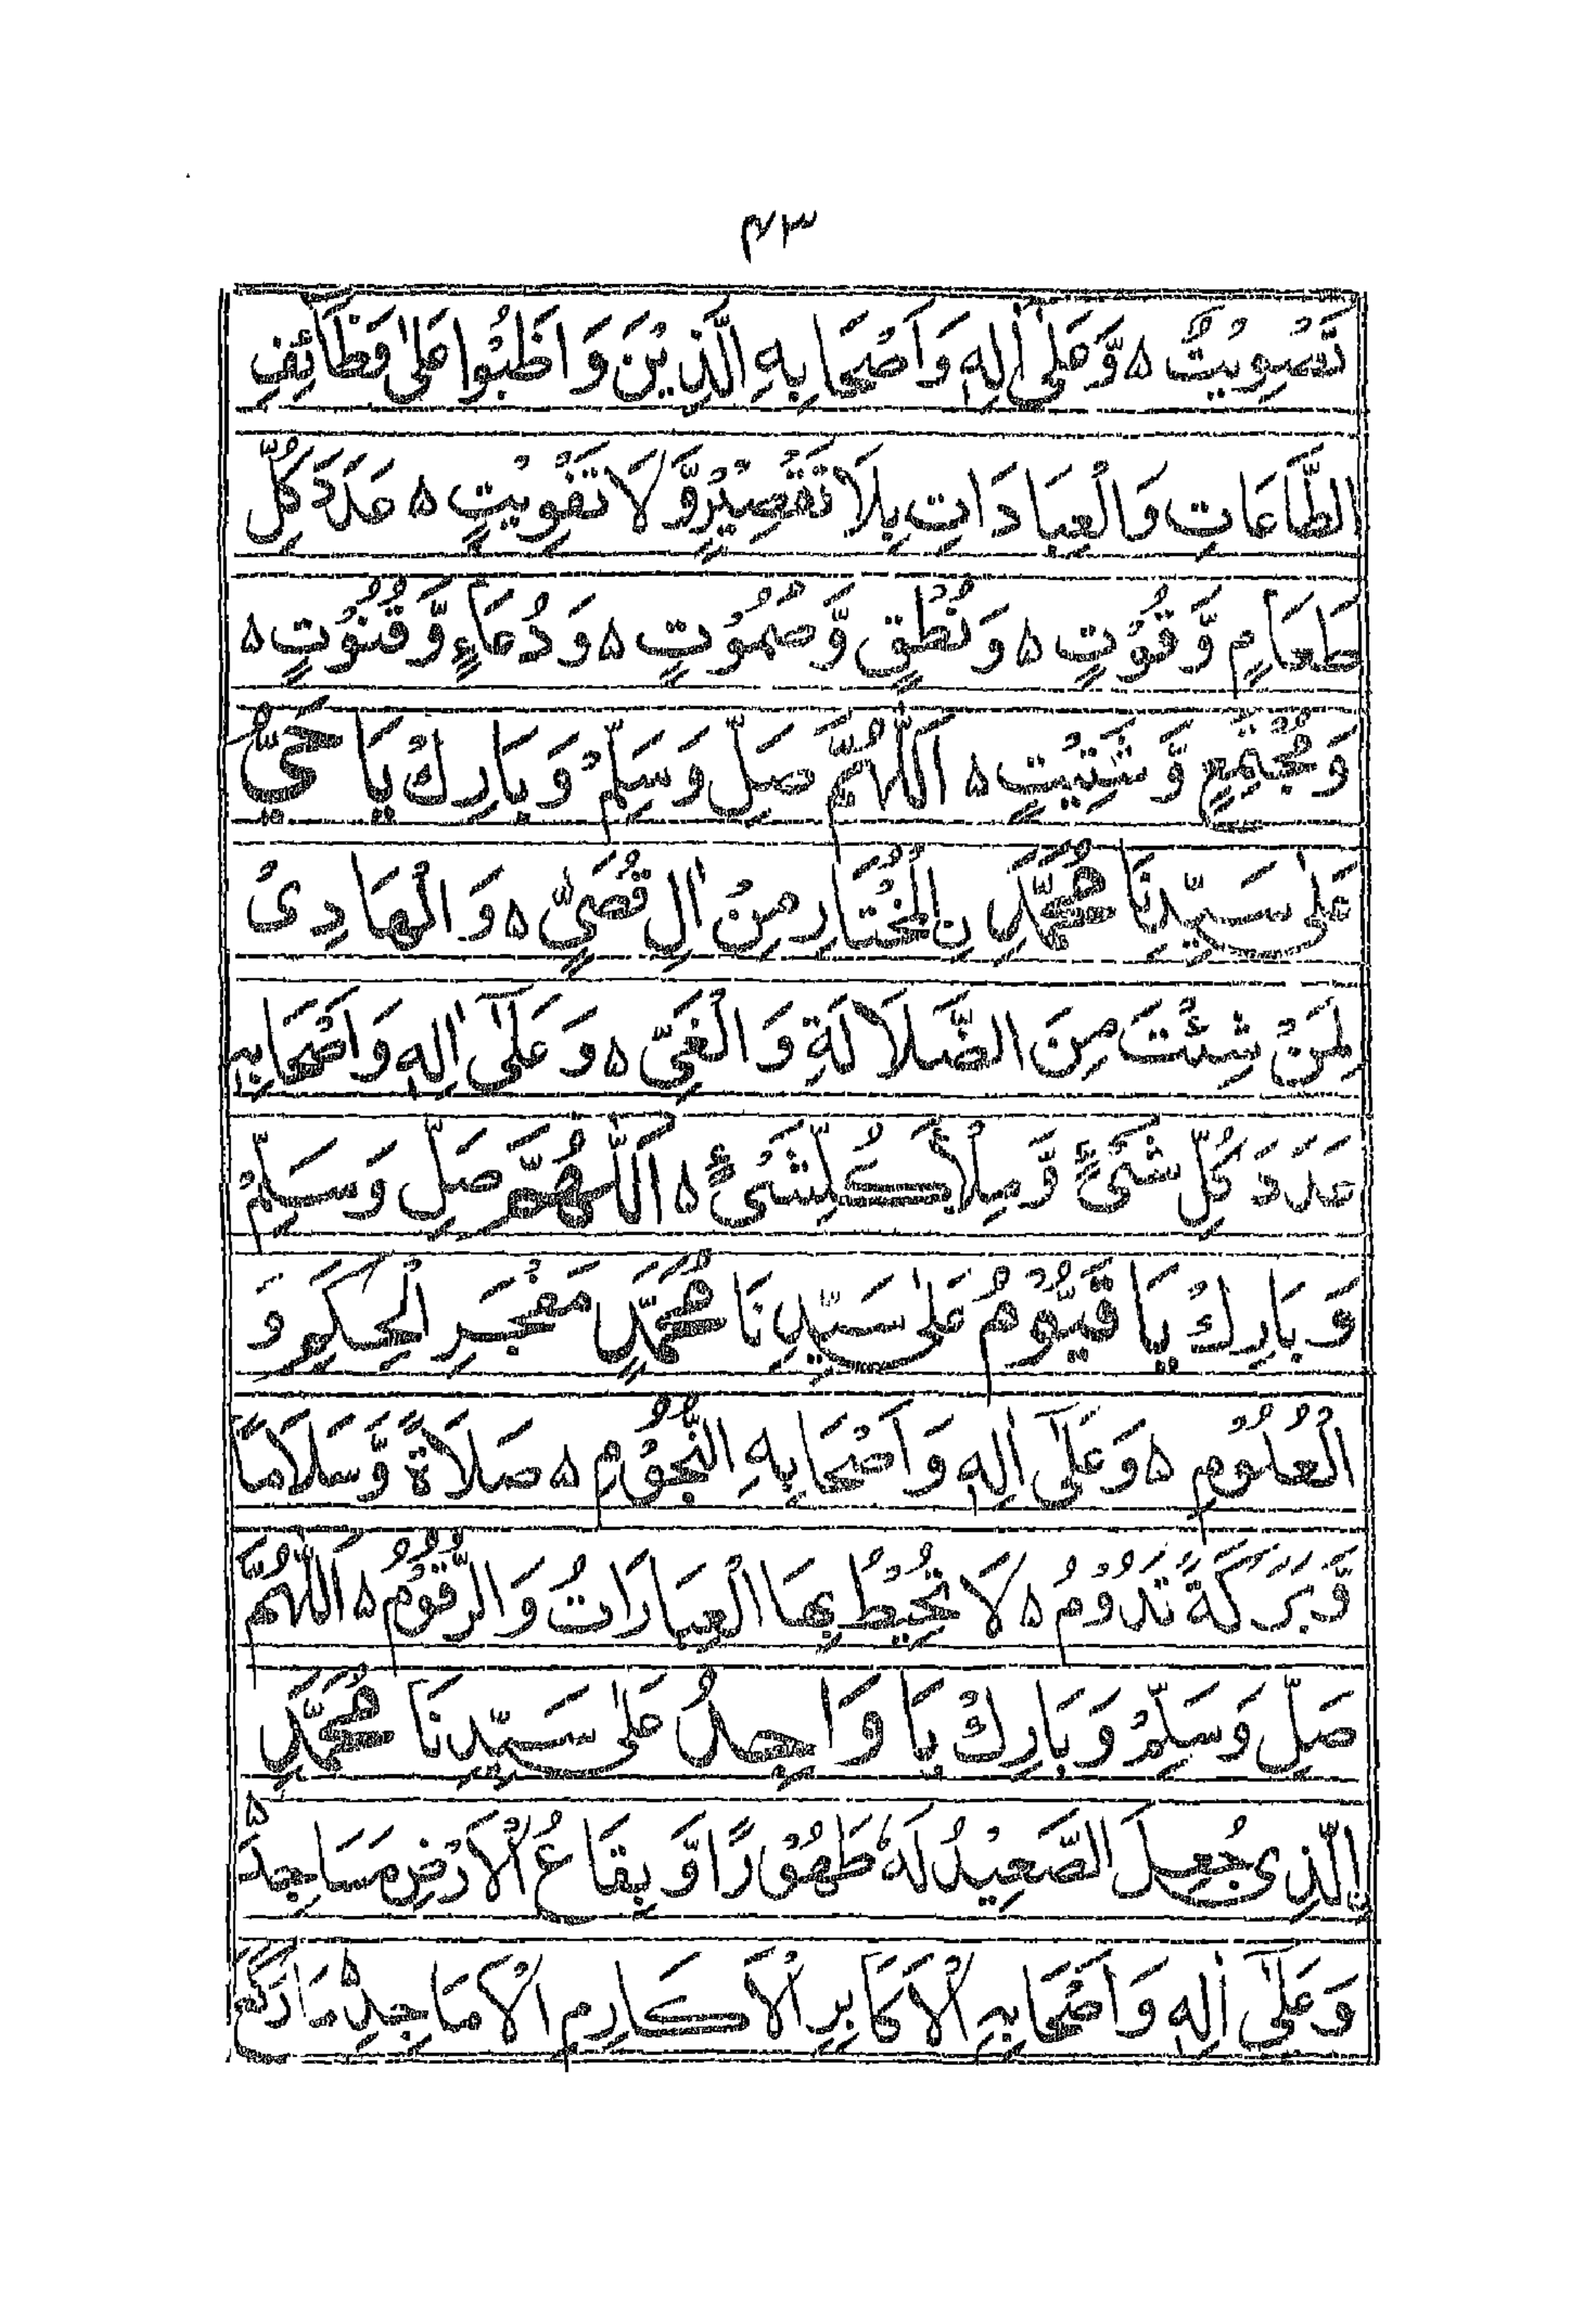 ۴۳
تَصْوِيْتٌ ۵ وَّعَلٰى اٰلِهٖ وَاَصْحَابِهِ الَّذِيْنَ وَاظَبُوْا عَلٰى وَظَآئِفِ
الطَّاعَاتِ وَالْعِبَادَاتِ بِلَا تَقْصِيْرٍ وَّلَا تَفْوِيْتٍ ۵ عَدَدَ كُلِّ
طَعَامٍ وَّقُوْتٍ ۵ وَنُطْقٍ وَّصُمُوْتٍ ۵ وَدُعَاءٍ وَّقُنُوْتٍ ۵
وَمُجْتَمِعٍ وَّشَتِيْتٍ ۵ اَللّٰهُمَّ صَلِّ وَسَلِّمْ وَبَارِكْ يَا حَيُّ
عَلٰى سَيِّدِنَا مُحَمَّدِ نِ الْمُخْتَارِ مِنْ اٰلِ قُصَيٍّ ۵ وَالْهَادِىْ
لِمَنْ شِئْتَ مِنَ الضَّلَالَةِ وَالْغَيِّ ۵ وَعَلٰٓى اٰلِهٖ وَاَصْحَابِهٖ
عَدَدَ كُلِّ شَىْءٍ وَّمِلْأَ كُلِّ شَىْءٍ ۵ اَللّٰهُمَّ صَلِّ وَسَلِّمْ
وَبَارِكْ يَا قَيُّوْمُ عَلٰى سَيِّدِنَا مُحَمَّدٍ مَفْجَرِ الْحِكَمِ وَ
الْعُلُوْمِ ۵ وَعَلٰٓى اٰلِهٖ وَاَصْحَابِهِ النُّجُوْمِ ۵ صَلَاةً وَّسَلَامًا
وَّبَرَكَةً تَدُوْمُ ۵ لَا تُحِيْطُ بِهَا الْعِبَارَاتُ وَالرُّقُوْمُ ۵ اَللّٰهُمَّ
صَلِّ وَسَلِّمْ وَبَارِكْ يَا وَاحِدُ عَلٰى سَيِّدِنَا مُحَمَّدِ
نِ الَّذِىْ جُعِلَ الصَّعِيْدُ لَهٗ طَهُوْرًا وَّبِقَاعُ الْاَرْضِ مَسَاجِدَ ۵
وَعَلٰٓى اٰلِهٖ وَاَصْحَابِهِ الْاَكَابِرِ الْاَكَارِمِ الْاَمَاجِدِ ۵ مَا رَكَعَ